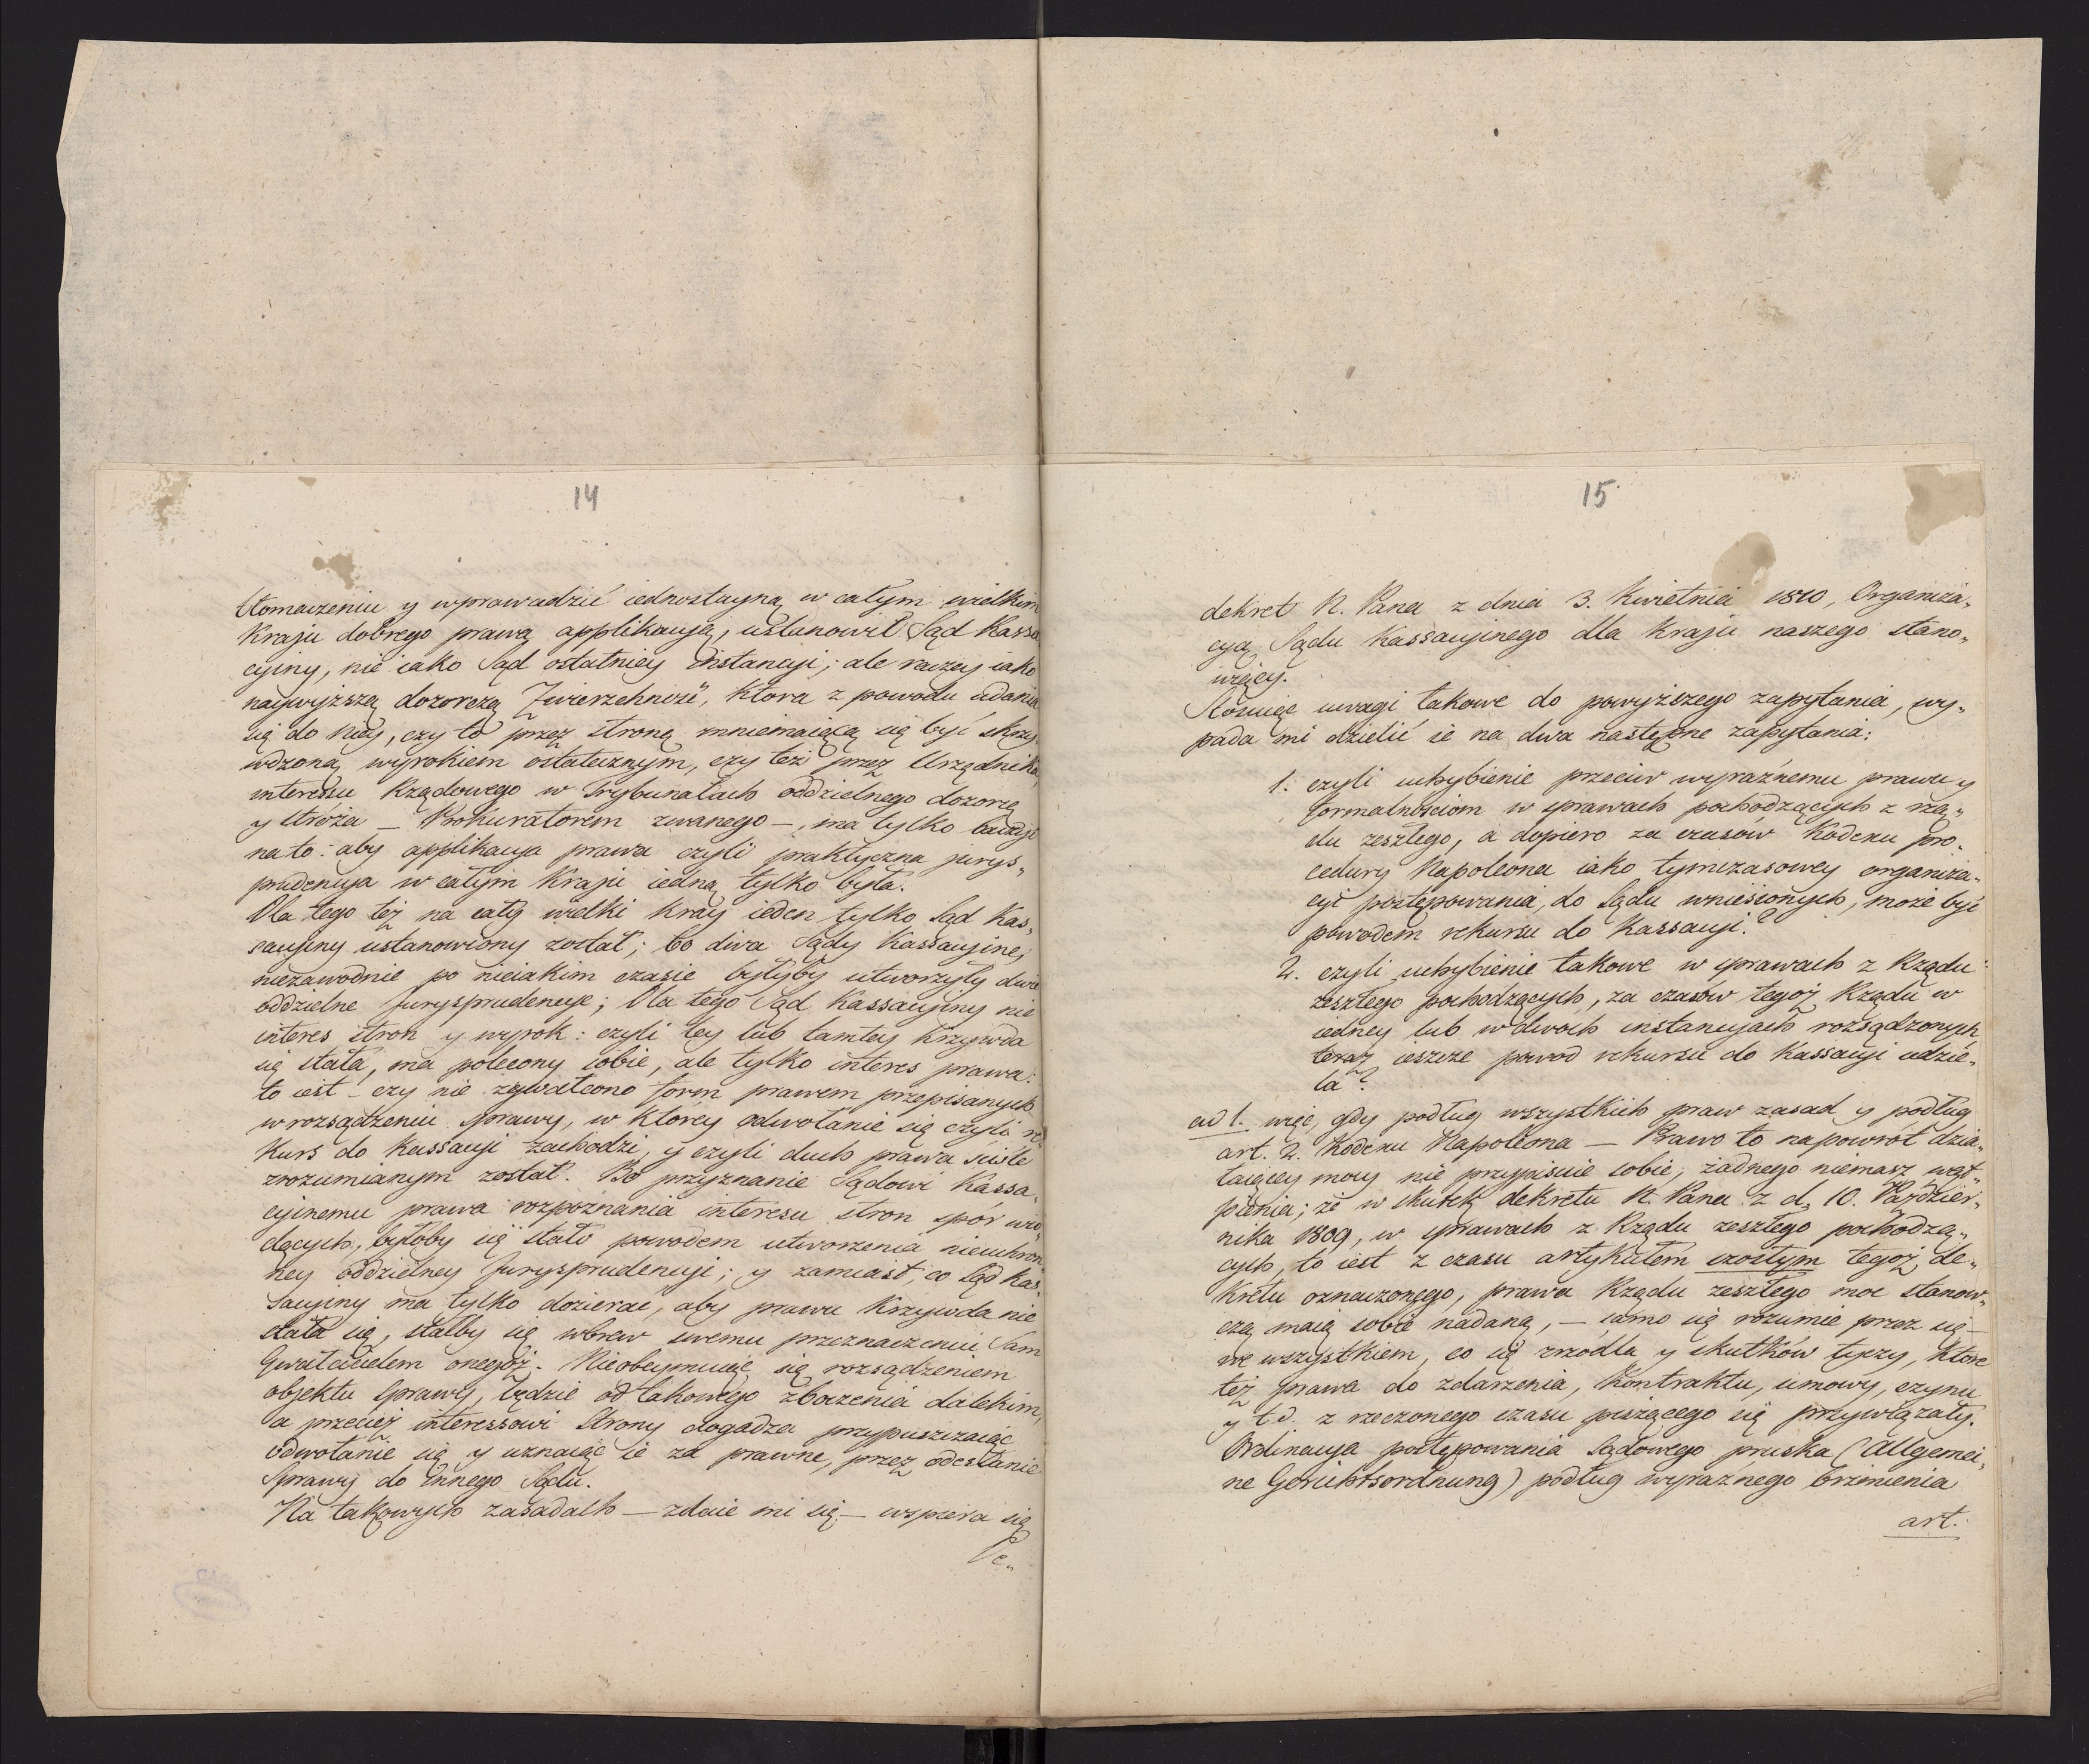 14
tłomaczeniu y wprowadzić iednostayną w całym wielkim
Kraju dobrego prawa applikacyą, ustanowił Sąd Kassa
cyiny, nie iako Sąd ostatniey Instancyi; ale raczey iako
naywyższą dozorczą Zwierzchniość, która z powodu udania
się do niey, czy to przez stronę mniemaiącą się być skrzy
wdzoną wyrokiem ostatecznym, czy też przez Urzędnika,
interessu Rządowego w Trybunałach oddzielnego dozorcę
y stróża — Prokuratorem zwanego —, ma tylko baczyć
na to: aby applikacya prawa czyli praktyczna jurys„
prudencya w całym Kraju iedną tylko była.
Dla tego też na cały wielki Kray ieden tylko Sąd Kas„
sacyiny ustanowiony został; bo dwa Sądy Kassacyine,
niezawodnie po nieiakim czasie byłyby utworzyły dwie
oddzielne Jurysprudencye; Dla tego Sąd Kassacyiny nie
interes stron y wyrok: czyli tey lub tamtey Krzywda
się stała, ma polecony sobie, ale tylko interes prawa:
to iest — czy nie zgwałcono form prawem przepisanych
w rozsądzeniu sprawy, w którey odwołanie się czyli re
kurs do Kassacyi zachodzi, y czyli duch prawa ściśle
zrozumianym został. Bo przyznanie Sądowi Kassa„
cyinemu prawa rozpoznania interesu stron spór wio„
dących, byłoby się stało powodem utworzenia nieuchron
ney oddzielney Jurysprudencyi; y zamiast, co Sąd Kas„
sacyiny ma tylko dozierać, aby prawu Krzywda nie
stała się, stałby się wbrew swemu przeznaczeniu sam
Gwałcicielem onegoż. Nieobeymuiąc się rozsądzeniem
objektu sprawy, będzie od takowego zboczenia dalekim,
a przecież interessowi strony dogadza przypuszczaiąc
odwołanie się y uznaiąc ie za prawne, przez odesłanie
sprawy do innego Sądu.
Na takowych zasadach — zdaie mi się — wspiera się
De„
15
dekret N. Pana z dnia 3. Kwietnia 1810, Organiza„
cyą Sądu Kassacyinego dla Kraju naszego stano„
wiący.
Stosuiąc uwagi takowe do powyższego zapytania, wy„
pada mi dzielić ie na dwa następne zapytania:
1. czyli uchybienie przeciw wyraźnemu prawu y
formalnościom w sprawach pochodzących z rzą„
du zeszłego, a dopiero za czasów Kodexu pro„
cedury Napoleona iako tymczasowey organiza„
cyi postępowania, do Sądu wniesionych, może być
powodem rekursu do Kassacyi?
2. czyli uchybienie takowe w sprawach z Rządu
zeszłego pochodzących, za czasów tegoż Rządu w
iedney lub w dwóch instancyach rozsądzonych
teraz ieszcze powod rekursu do Kassacyi udzie„
la?
ad 1. więc, gdy podług wszystkich praw zasad y podług
art. 2. Kodexu Napoleona — Prawo to napowrót dzia„
łaiącey mocy nie przypisuie sobie; żadnego niemasz wąt„
pienia; że w skutek dekretu N. Pana z d. 10. Paździer„
nika 1809, w sprawach z Rządu zeszłego pochodzą„
cych, to iest z czasu artykułem szóstym tegoż de„
kretu oznaczonego, prawa Rządu zeszłego moc stanow„
czą maią sobie nadaną, — samo się rozumie przez się —
we wszystkiem, co się źródła y skutków tyczy, które
też prawa do zdarzenia, Kontraktu, umowy, czynu
y t.d. z rzeczonego czasu piszącego się przywiązały.
Ordinacya postępowania Sądowego pruska (Allgemei„
ne Gerichtsordnung) podług wyraznego brzmienia
art.